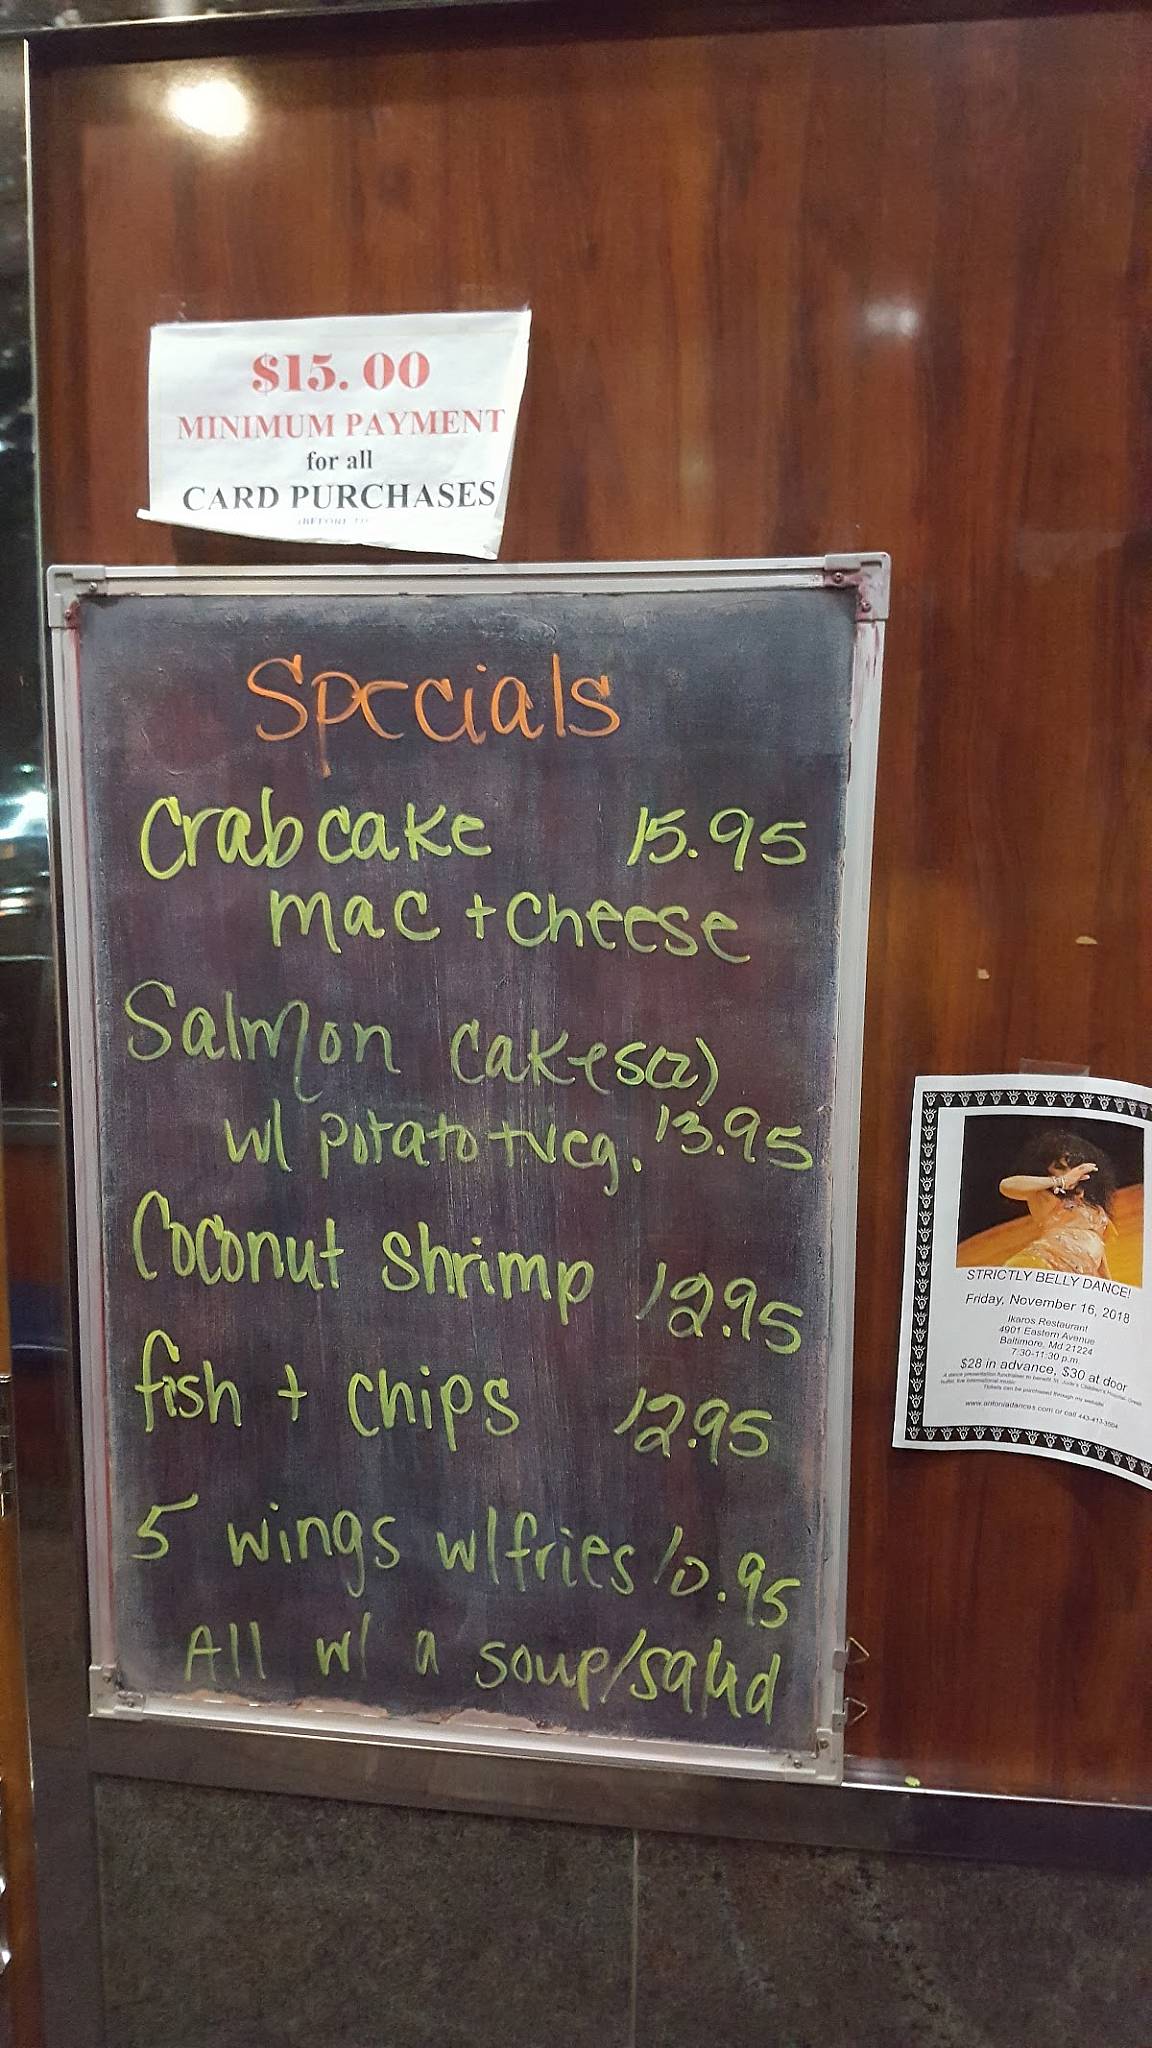 $15.00
MINIMUM PAYMENT
for all
CARD PURCHASES
Specials
Crab cake 15.95
mac + cheese
Salmon cakes(2)
w/ potato + veg. 13.95
Coconut shrimp 12.95
fish + chips 12.95
5 wings w/fries 10.95
All w/ a soup/salad
STRICTLY BELLY DANCE!
Friday, November 16, 2018
Ikaros Restaurant
4901 Eastern Avenue
Baltimore, Md 21224
7:30-11:30 p.m
$28 in advance, $30 at door
A dance presentation fundraiser to benefit St. Jude's Children's Hospital. Greek
buffet, live international music
Tickets can be purchased through my website
www.antoniadances.com or call 443-413-3504